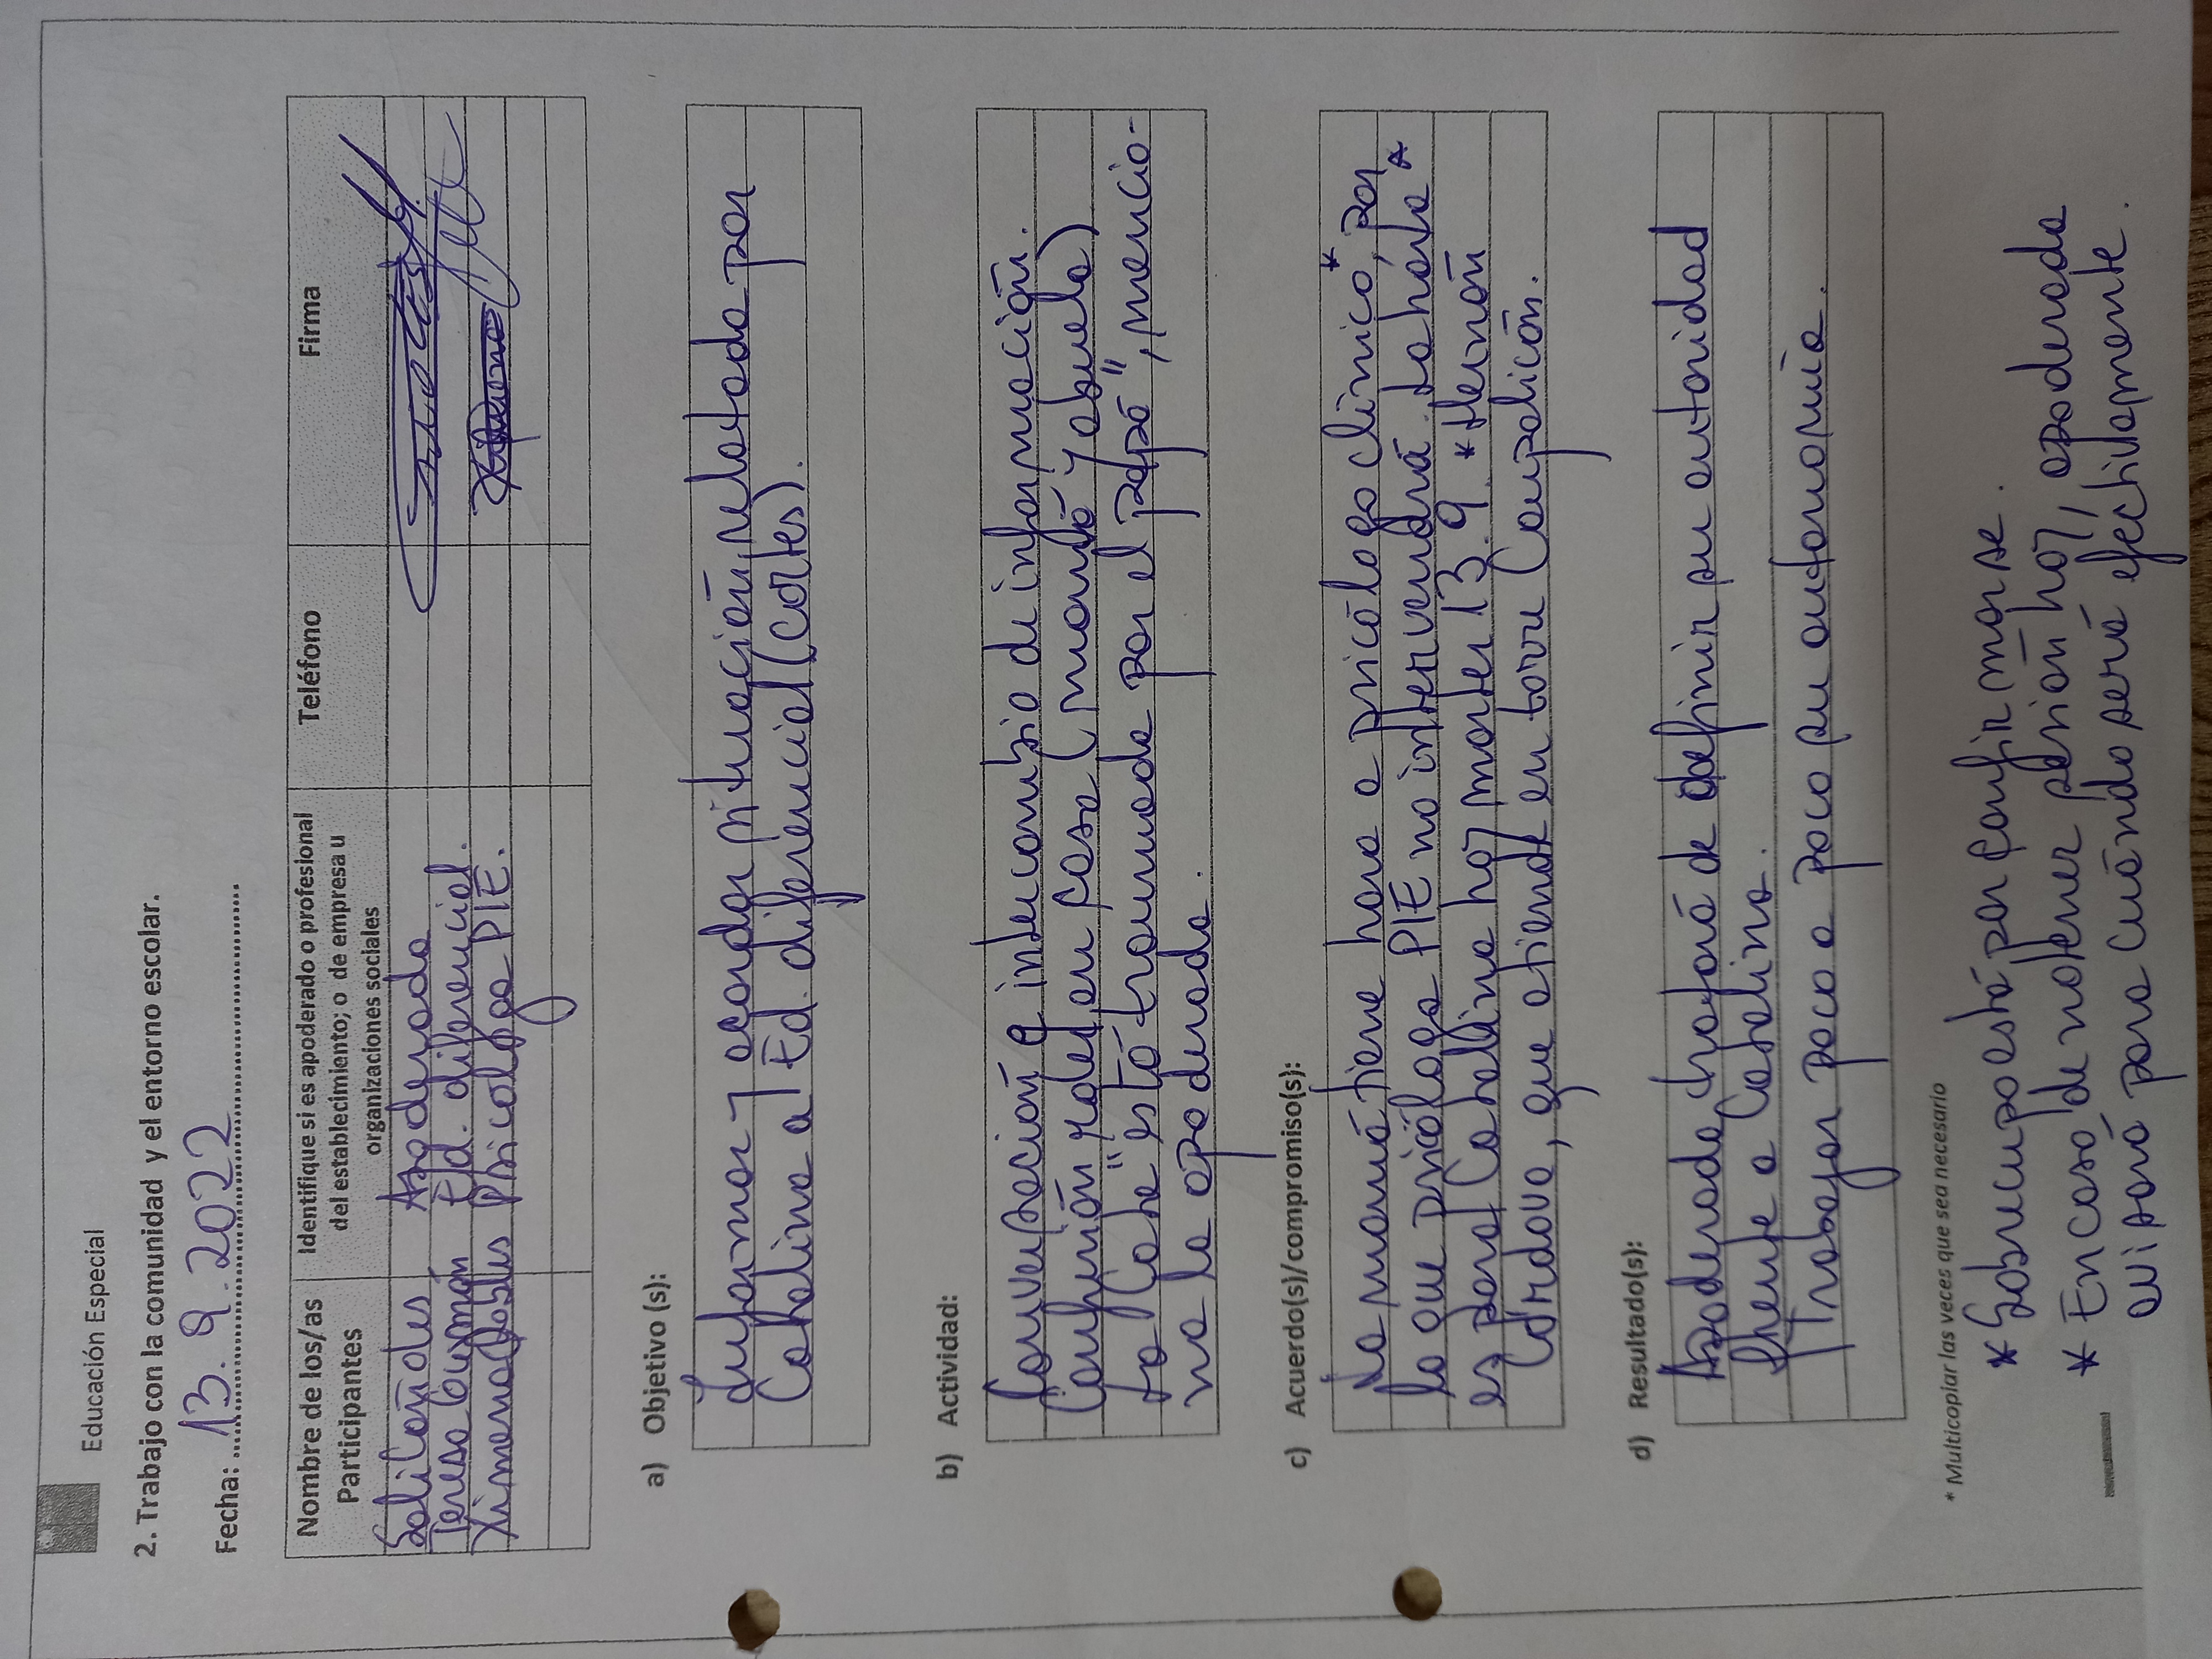 Educación Especial
2. Trabajo con la comunidad y el entorno escolar.
Fecha: 13.9.2022
Nombre de los/as Participantes
Identifique si es apoderado o profesional del establecimiento; o de empresa u organizaciones sociales
Teléfono
Firma
Soli Cañoles Apoderada
Teresa Guzmán Ed. diferencial.
Ximena Robles Psicologa PIE.
a) Objetivo (s):
Informar y acordar situación, relatada por
Catalina a Ed. diferencial (cortes).
b) Actividad:
Conversación e intercambio de información.
Confusión roles en casa (mamá y abuela)
"está traumada por el papá", mencio-
na la apoderada.
c) Acuerdo(s)/compromiso(s):
La mamá tiene hora a psicólogo clínico*, por
lo que psicóloga PIE no intervendrá. La hora*
es para Catalina hoy martes 13.9. * Hernán
Córdova, que atiende en torre Campolición.
d) Resultado(s):
Apoderada tratará de definir su autoridad
frente a Catalina.
Trabajar poco a poco su autonomía.
* Multicopiar las veces que sea necesario
* Sobrecupo está por confirmarse.
* En caso de no tener sesión hoy, apoderada
avisará para cuándo será efectivamente.